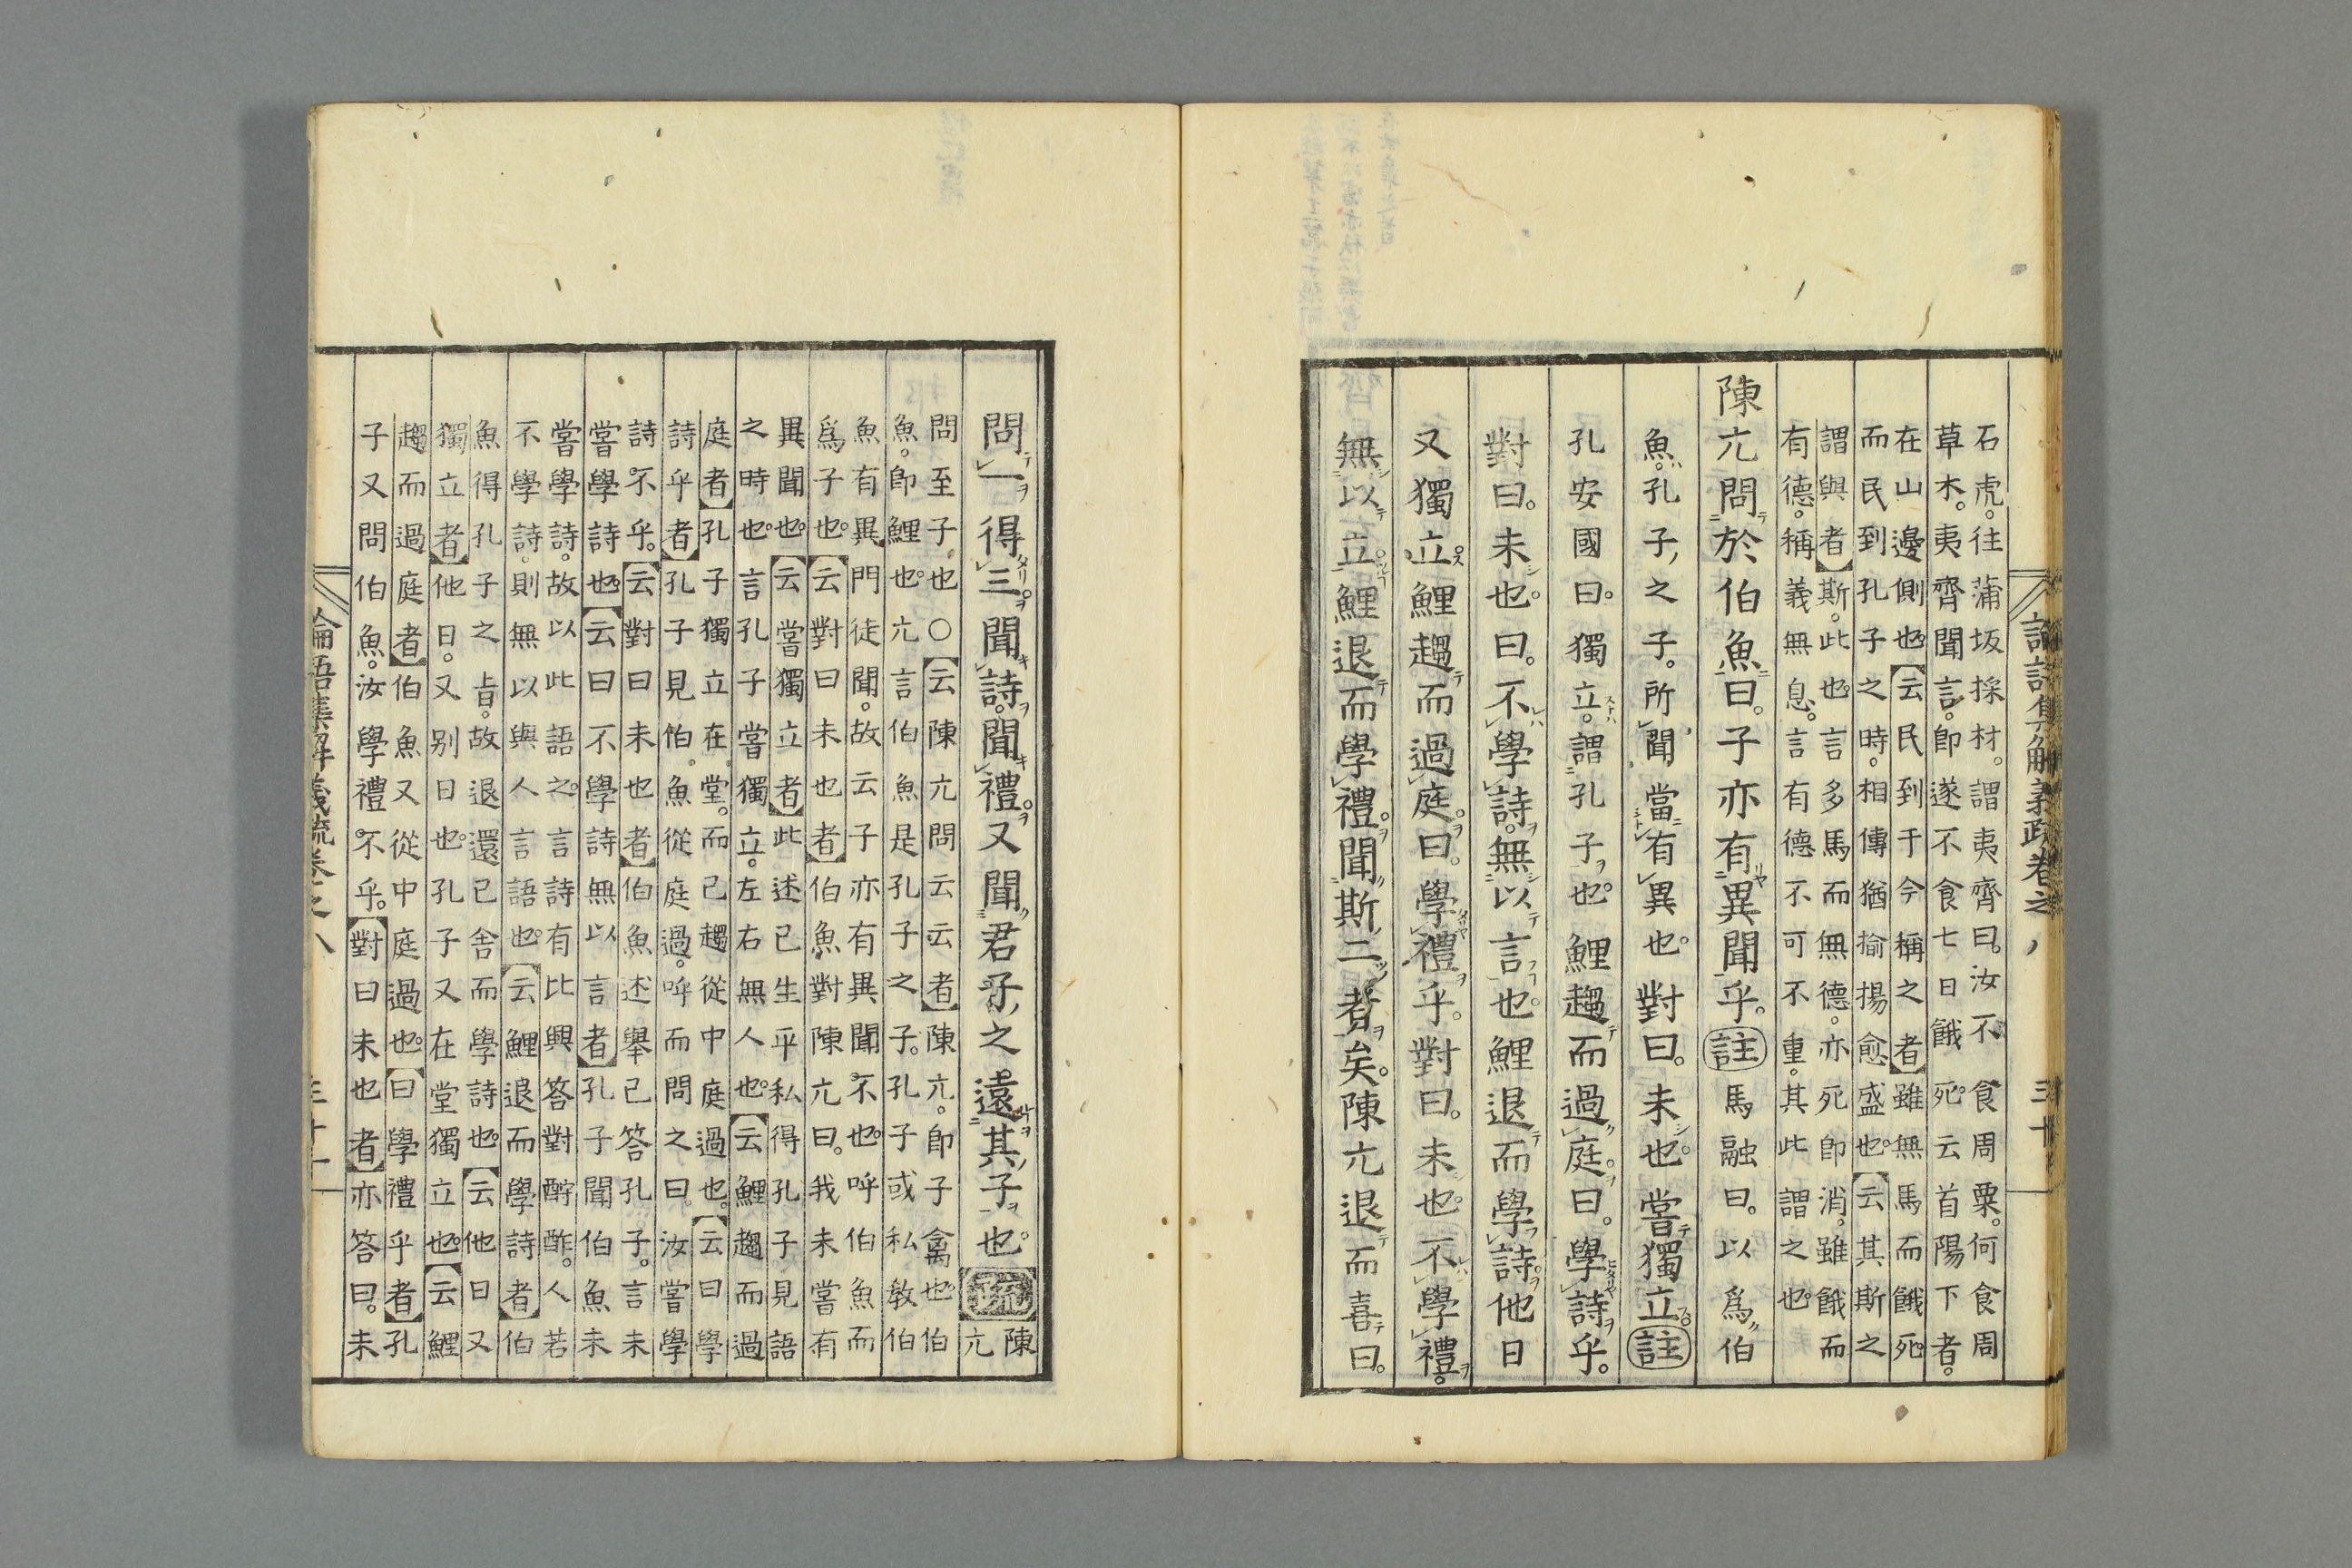 論語集解義疏卷之八 三十
石虎。往蒲坂採材。謂夷齊曰。汝不食周粟。何食周
草木。夷齊聞言。即遂不食七日餓死。云首陽下者。
在山邊側也【云民到于今稱之者】雖無馬而餓死。
而民到孔子之時。相傳猶揄揚愈盛也。【云其斯之
謂與者】斯。此也。言多馬而無德。亦死即消。雖餓而
有德。稱義無息。言有德不可不重。其此謂之也。
陳亢問於伯魚曰。子亦有異聞乎。註馬融曰。以爲伯
魚。孔子之子。所聞當有異也。對曰。未也。嘗獨立。註
孔安國曰。獨立。謂孔子也。鯉趨而過庭。曰。學詩乎。
對曰。未也。曰。不學詩。無以言也。鯉退而學詩。他日
又獨立。鯉趨而過庭。曰。學禮乎。對曰。未也。不學禮。
無以立。鯉退而學禮。聞斯二者矣。陳亢退而喜曰。
問一得三。聞詩。聞禮。又聞君子之遠其子也。疏陳亢
問至子也○【云陳亢問云云者】陳亢。即子禽也。伯
魚。即鯉也。亢言伯魚是孔子之子。孔子或私敎伯
魚有異門徒聞。故云子亦有異聞不也。呼伯魚而
爲子也。【云對曰未也者】伯魚對陳亢曰。我未嘗有
異聞也。【云嘗獨立者】此述已生平私得孔子見語
之時也。言孔子嘗獨立。左右無人也。【云鯉趨而過
庭者】孔子獨立在堂。而已趨從中庭過也。【云曰學
詩乎者】孔子見伯魚從庭過。呼而問之曰。汝嘗學
詩不乎。【云對曰未也者】伯魚述舉已答孔子。言未
嘗學詩也。【云曰不學詩無以言者】孔子聞伯魚未
嘗學詩。故以此語之。言詩有比興答對酧酢。人若
不學詩。則無以與人言語也。【云鯉退而學詩者】伯
魚得孔子之旨。故退還已舎而學詩也。【云他日又
獨立者】他日。又別日也。孔子又在堂獨立也。【云鯉
趨而過庭者】伯魚又從中庭過也。【曰學禮乎者】孔
子又問伯魚。汝學禮不乎。【對曰未也者】亦答曰。未
論語集解義疏卷之八 三十一